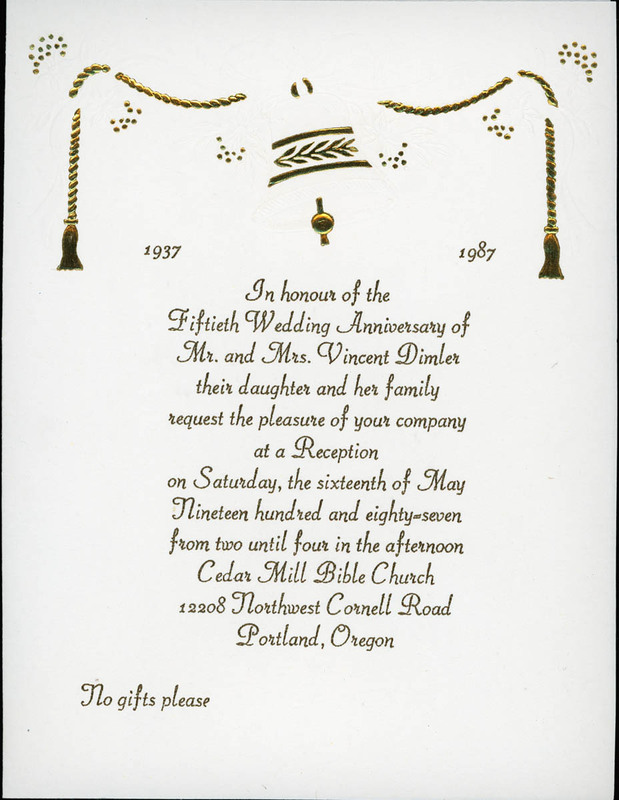 1937 1987
In honour of the
Fiftieth Wedding Anniversary of
Mr. and Mrs. Vincent Dimler
their daughter and her family
request the pleasure of your company
at a Reception
on Saturday, the sixteenth of May
Nineteen hundred and eighty-seven
from two until four in the afternoon
Cedar Mill Bible Church
12208 Northwest Cornell Road
Portland, Oregon
No gifts please